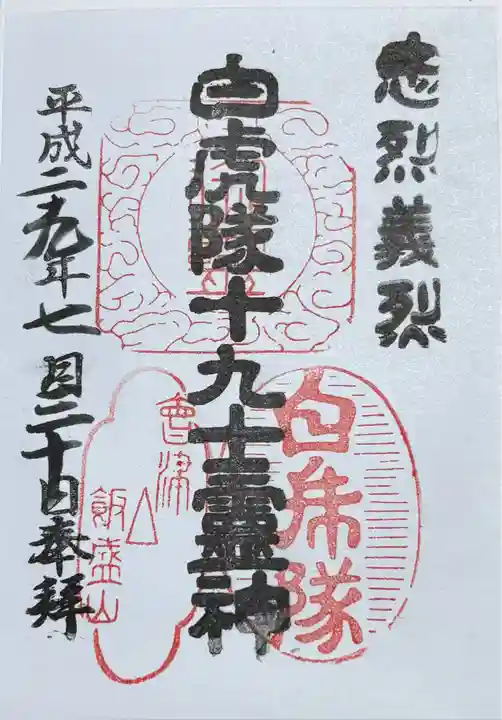 忠烈義烈
白虎隊十九士靈神
平成二十九年七月三十日奉拜
白虎隊
會津
飯盛山